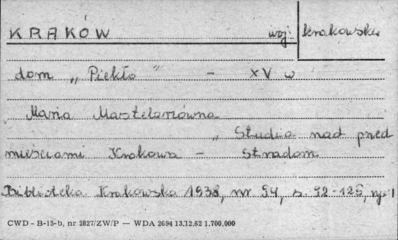 KRAKÓW woj. krakowskie
dom „Piekło" - XV w
Maria Mastelarzówna
„Studia nad przed
mieściami Krakowa - Stradom
Biblioteka Krakowska 1938, nr 94, s. 92-125,
CWD - B-15-b, nr 2827/ZW/P — WDA 2694 13.12.62 1.700.000